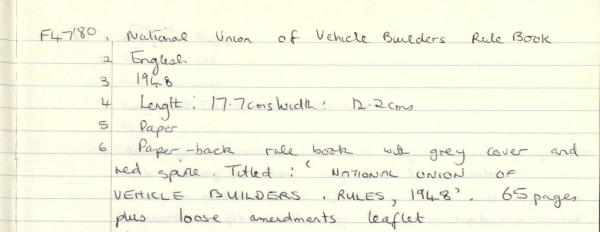 F47'80. National Union of Vehicle Builders Rule Book
2 English
3 1948
4 Length: 17.7cms Width: 12.2cms
5 Paper
6 Paper-back rule book with grey cover and
red spine. Titled: 'NATIONAL UNION OF
VEHICLE BUILDERS. RULES, 1948'. 65 pages
plus loose amendments leaflet